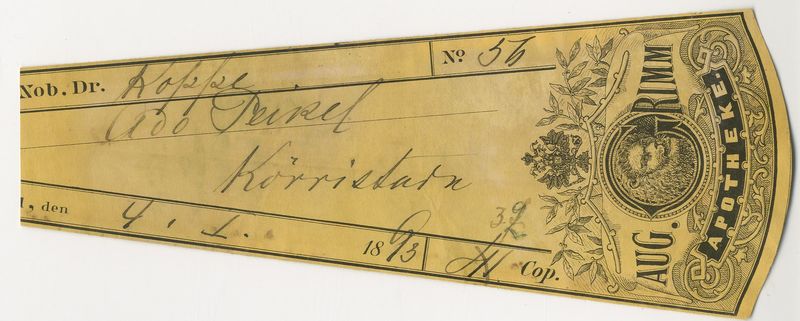 Nob. Dr. Koppe
№ 56
Ado Peikel
Körristada
, den 4. 1. 1893
Cop.
AUG. GRIMM
APOTHEKE.